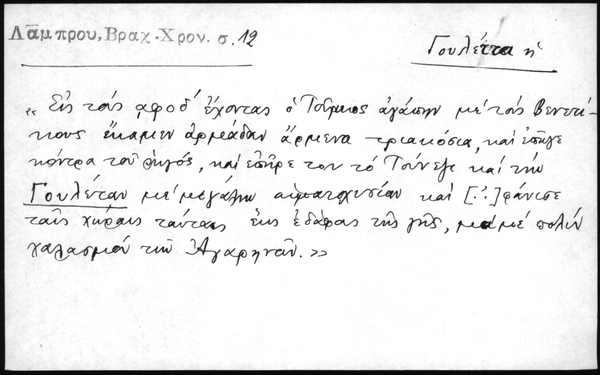 Λάμπρου, Βραχ. Χρον. σ. 12
Γουλέττα ἡ
« Εἰς τοὺς αφοδ΄ ἔχοντας ὁ Τοῦρκος ἀγάπην μὲ τοὺς Βενετί-
κους ἔκαμεν ἀρμάδαν ἄρμενα τριακόσια, καὶ ἐπῆγε
κόντρα τοῦ ῥηγός, καὶ ἐπῆρε τον τὸ Τούνεζι καὶ τὴν
Γουλέταν μὲ μεγάλην αἱματοχυσίαν καὶ [..]φάνισε
ταῖς χώραις ταύταις ἕως ἐδάφους τῆς γῆς, μὲ πολὺν
χαλασμὸν τῶν Ἀγαρηνῶν. »